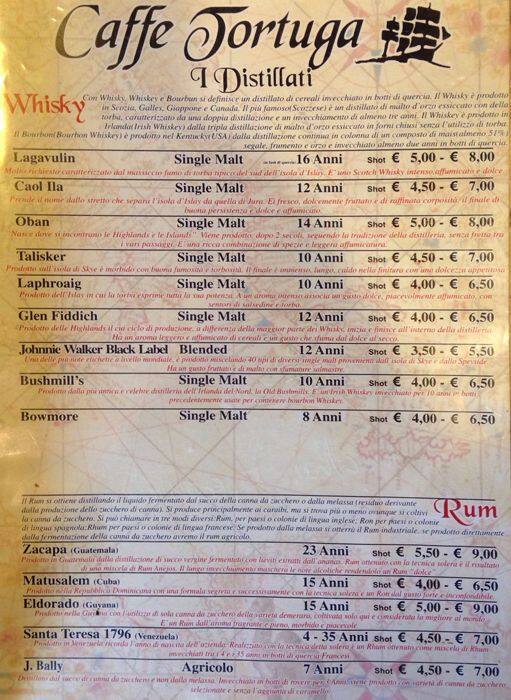 Caffe Tortuga
I Distillati
Whisky
Con Whisky, Whiskey e Bourbun si definisce un distillato di cereali invecchiato in botti di quercia. Il Whisky è prodotto
in Scozia, Galles, Giappone e Canada. Il più famoso(Scozzese) è un distillato di malto d'orzo essiccato con della
torba, caratterizzato da una doppia distillazione e un invecchiamento di almeno tre anni. Il Whiskey è prodotto in
Irlanda(Irish Whiskey) dalla tripla distillazione di malto d'orzo essiccato in forni chiusi senza l'utilizzo di torba.
Il Bourbon(Bourbon Whiskey) è prodotto nel Kentucky(USA) dalla distillazione continua in colonna di un composto di mais(almeno 51%)
segale, frumento e orzo e invecchiato almeno due anni in botti di quercia.
Lagavulin Single Malt 16 Anni Shot € 5,00 - € 8,00
Molto richiesto caratterizzato dal massiccio fumo di torba tipico del sud dell'isola d'Islay. E' uno Scotch Whisky intenso affumicato e dolce
Caol Ila Single Malt 12 Anni Shot € 4,50 - € 7,00
Prende il nome dallo stretto che separa l'isola d'Islay da quella di Jura. Ei fresco, dolcemente fruttato e di raffinata corposità, il finale di
buona persistenza e dolce e affumicato.
Oban Single Malt 14 Anni Shot € 5,00 - € 8,00
Nasce dove si incontrano le Highlands e le Islands". Viene prodotto, dopo 2 secoli, seguendo la tradizione della distilleria, senza fretta tra
i vari passaggi. E' una ricca combinazione di spezie e leggera affumicatura.
Talisker Single Malt 10 Anni Shot € 4,50 - € 7,00
Prodotto sull'isola di Skye è morbido con buona fumosità e torbosità. Il finale è immenso, lungo, caldo nella finitura con una dolcezza appetitosa
Laphroaig Single Malt 10 Anni Shot € 4,00 - € 6,50
Prodotto dell'Islay in cui la torba esprime tutta la sua potenza. A un aroma intenso associa un gusto dolce, piacevolmente affumicato, con
sentori di salsedine e torba.
Glen Fiddich Single Malt 12 Anni Shot € 4,00 - € 6,50
Prodotto delle Highlands il cui ciclo di produzione, a differenza della maggior parte dei Whisky, inizia e finisce all'interno della distilleria.
Ha un aroma leggero e affumicato di cereali e un gusto che sfuma dal dolce al secco.
Johnnie Walker Black Label Blended 12 Anni Shot € 3,50 - € 5,50
Una delle più note etichette a livello mondiale, è prodotto miscelando 40 tipi di diversi single malt proveniente dall'isola di Skye e dallo Speyside
Ha un gusto fruttato e di malto con sfumature salmastre.
Bushmill's Single Malt 10 Anni Shot € 4,00 - € 6,50
Prodotto dalla più antica e celebre distilleria dell'Irlanda del Nord, la Old Bushmills. E' un Irish Whiskey invecchiato per 10 anni in botti
precedentemente usate per contenere bourbon Whiskey.
Bowmore Single Malt 8 Anni Shot € 4,00 - € 6,50
Il Rum si ottiene distillando il liquido fermentato dal succo della canna da zucchero o dalla melassa (residuo derivante
dalla produzione dello zucchero di canna). Si produce principalmente ai caraibi, ma si trova più o meno ovunque si coltivi
la canna da zucchero. Si può chiamare in tre modi diversi: Rum, per paesi o colonie di lingua inglese; Ron per paesi o colonie
di lingua spagnola; Rhum per paesi o colonie di lingua francese. Se prodotto dalla melassa si otterrà il Rum industriale, se prodotto direttamente
dalla fermentazione della canna da zucchero avremo il rum agricolo.
Rum
Zacapa (Guatemala) 23 Anni Shot € 5,50 - € 9,00
Prodotto in Guatemala dalla distillazione di succo vergine fermentato con lieviti estratti dall'ananas. Rum ottenuto con la tecnica solera è il risultato
di una miscela di Rum Anejos. Il lungo invecchiamento maschera le note alcoliche rendendolo un Rum "dolce"
Matusalem (Cuba) 15 Anni Shot € 4,00 - € 6,50
Prodotto nella Repubblica Dominicana con una formula segreta e successivamente con la tecnica solera è un Ron dal gusto forte e inconfondibile.
Eldorado (Guyana) 15 Anni Shot € 5,00 - € 9,00
Prodotto nella Guyana con l'utilizzo di sola canna da zucchero della varietà demerara, coltivata solo qui e considerata la migliore al mondo.
E' un Rum dall'aroma fragrante e pieno, morbido e piacevole.
Santa Teresa 1796 (Venezuela) 4 - 35 Anni Shot € 4,50 - € 7,00
Prodotto in Venezuela ricorda l'anno di nascita dell'azienda. Realizzato con la tecnica della solera è un Rhum ottenuto come miscela di Rhum
invecchiati tra i 4 e i 35 anni in botti di quercia Francesi
J. Bally Agricolo 7 Anni Shot € 4,50 - € 7,00
Distillato dal succo di canna e non dalla melassa. Invecchiato in botti di rovere per 7 Anni, viene prodotto con varietà di canna da zucchero
selezionate e senza l'aggiunta di caramello.